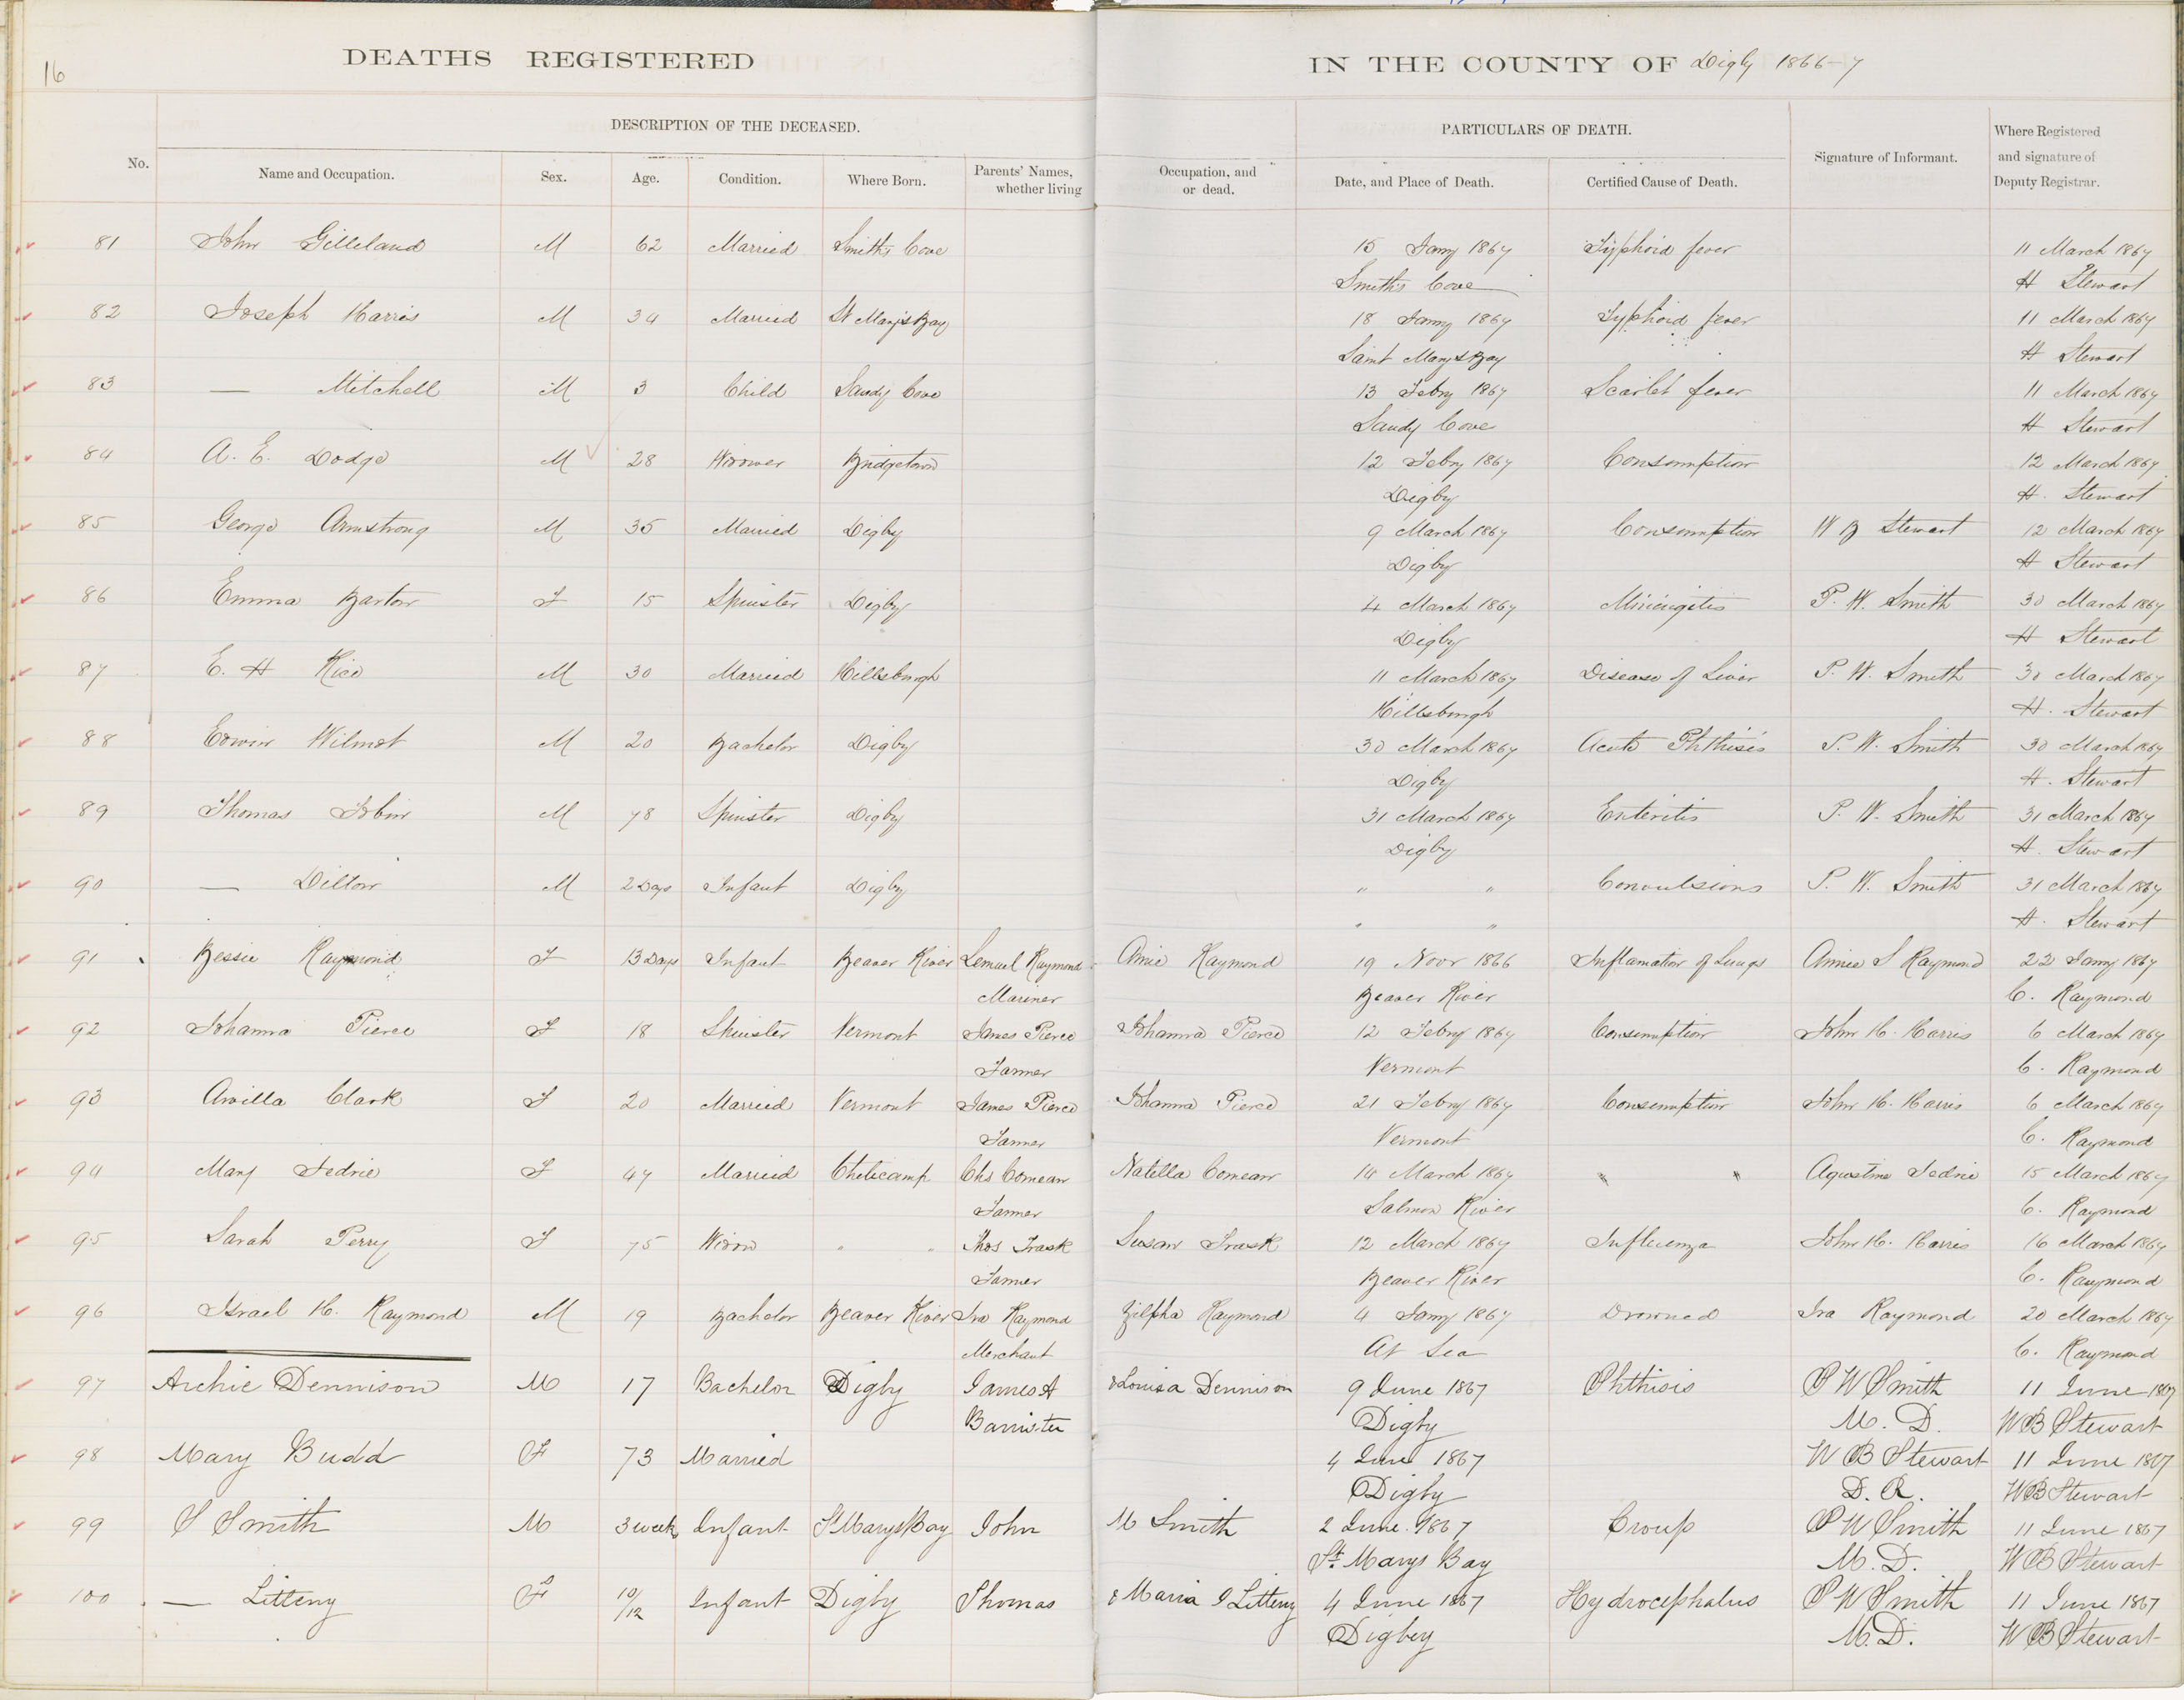 16
DEATHS REGISTERED IN THE COUNTY OF Digby 1866-7
DESCRIPTION OF THE DECEASED. PARTICULARS OF DEATH.
No. Name and Occupation. Sex. Age. Condition. Where Born. Parents' Names, whether living Occupation, and or dead. Date, and Place of Death. Certified Cause of Death. Signature of Informant. Where Registered and signature of Deputy Registrar.
81 John Gilleland M 62 Married Smith's Cove 15 Jany 1867 Typhoid fever 11 March 1867
Smith's Cove H Stewart
82 Joseph Harris M 34 Married St Mary's Bay 18 Jany 1867 Typhoid fever 11 March 1867
Saint Marys Bay H Stewart
83 — Mitchell M 3 Child Sandy Cove 13 Febry 1867 Scarlet fever 11 March 1867
Sandy Cove H Stewart
84 A. E. Dodge M 28 Widower Bridgetown 12 Febry 1867 Consumption 12 March 1867
Digby H. Stewart
85 George Armstrong M 35 Married Digby 9 March 1867 Consumption W B Stewart 12 March 1867
Digby H Stewart
86 Emma Barton F 15 Spinster Digby 4 March 1867 Miningitis P. W. Smith 30 March 1867
Digby H Stewart
87 E. H Rice M 30 Married Hillsburgh 11 March 1867 Disease of Liver P. W. Smith 30 March 1867
Hillsburgh H. Stewart
88 Edwin Wilmot M 20 Bachelor Digby 30 March 1867 Acute Phthisis P. W. Smith 30 March 1867
Digby H. Stewart
89 Thomas Tobin M 78 Spinster Digby 31 March 1867 Enteritis P. W. Smith 31 March 1867
Digby H. Stewart
90 — Dillon M 2 Days Infant Digby " " Convulsions P. W. Smith 31 March 1867
" " H. Stewart
91 Bessie Raymond F 13 Days Infant Beaver River Lemuel Raymond Amie Raymond 19 Novr 1866 Inflamation of Lungs Aimee S Raymond 22 Jany 1867
Mariner Beaver River C. Raymond
92 Johanna Pierce F 18 Spinster Vermont James Pierce Johanna Pierce 12 Febry 1867 Consumption John H. Harris 6 March 1867
Farmer Vermont C. Raymond
93 Arvilla Clark F 20 Married Vermont James Pierce Johanna Pierce 21 Febry 1867 Consumption John H. Harris 6 March 1867
Farmer Vermont C. Raymond
94 Mary Jedrie F 47 Married Cheticamp Chs Comeau Natella Comeau 14 March 1867 " " Agustine Jedrie 15 March 1867
Farmer Salmon River C. Raymond
95 Sarah Perry F 75 Widow " " Thos Trask Susan Trask 12 March 1867 Influenza John H. Harris 16 March 1867
Farmer Beaver River C. Raymond
96 Israel H. Raymond M 19 Bachelor Beaver River Ira Raymond Zilpha Raymond 4 Jany 1867 Drowned Ira Raymond 20 March 1867
Merchant At Sea C. Raymond
97 Archie Dennison M 17 Bachelor Digby James A & Louisa Dennison 9 June 1867 Phthisis P W Smith 11 June 1867
Barrister Digby M. D. W B Stewart
98 Mary Budd F 73 Married 4 June 1867 W B Stewart 11 June 1867
Digby D. R. W B Stewart
99 S Smith M 3 weeks Infant St Marys Bay John M Smith 2 June 1867 Croup P W Smith 11 June 1867
St. Marys Bay M. D. W B Stewart
100 — Litteny F 10/12 Infant Digby Thomas & Maria I Litteny 4 June 1867 Hydrocephalus P W Smith 11 June 1867
Digby M. D. W B Stewart